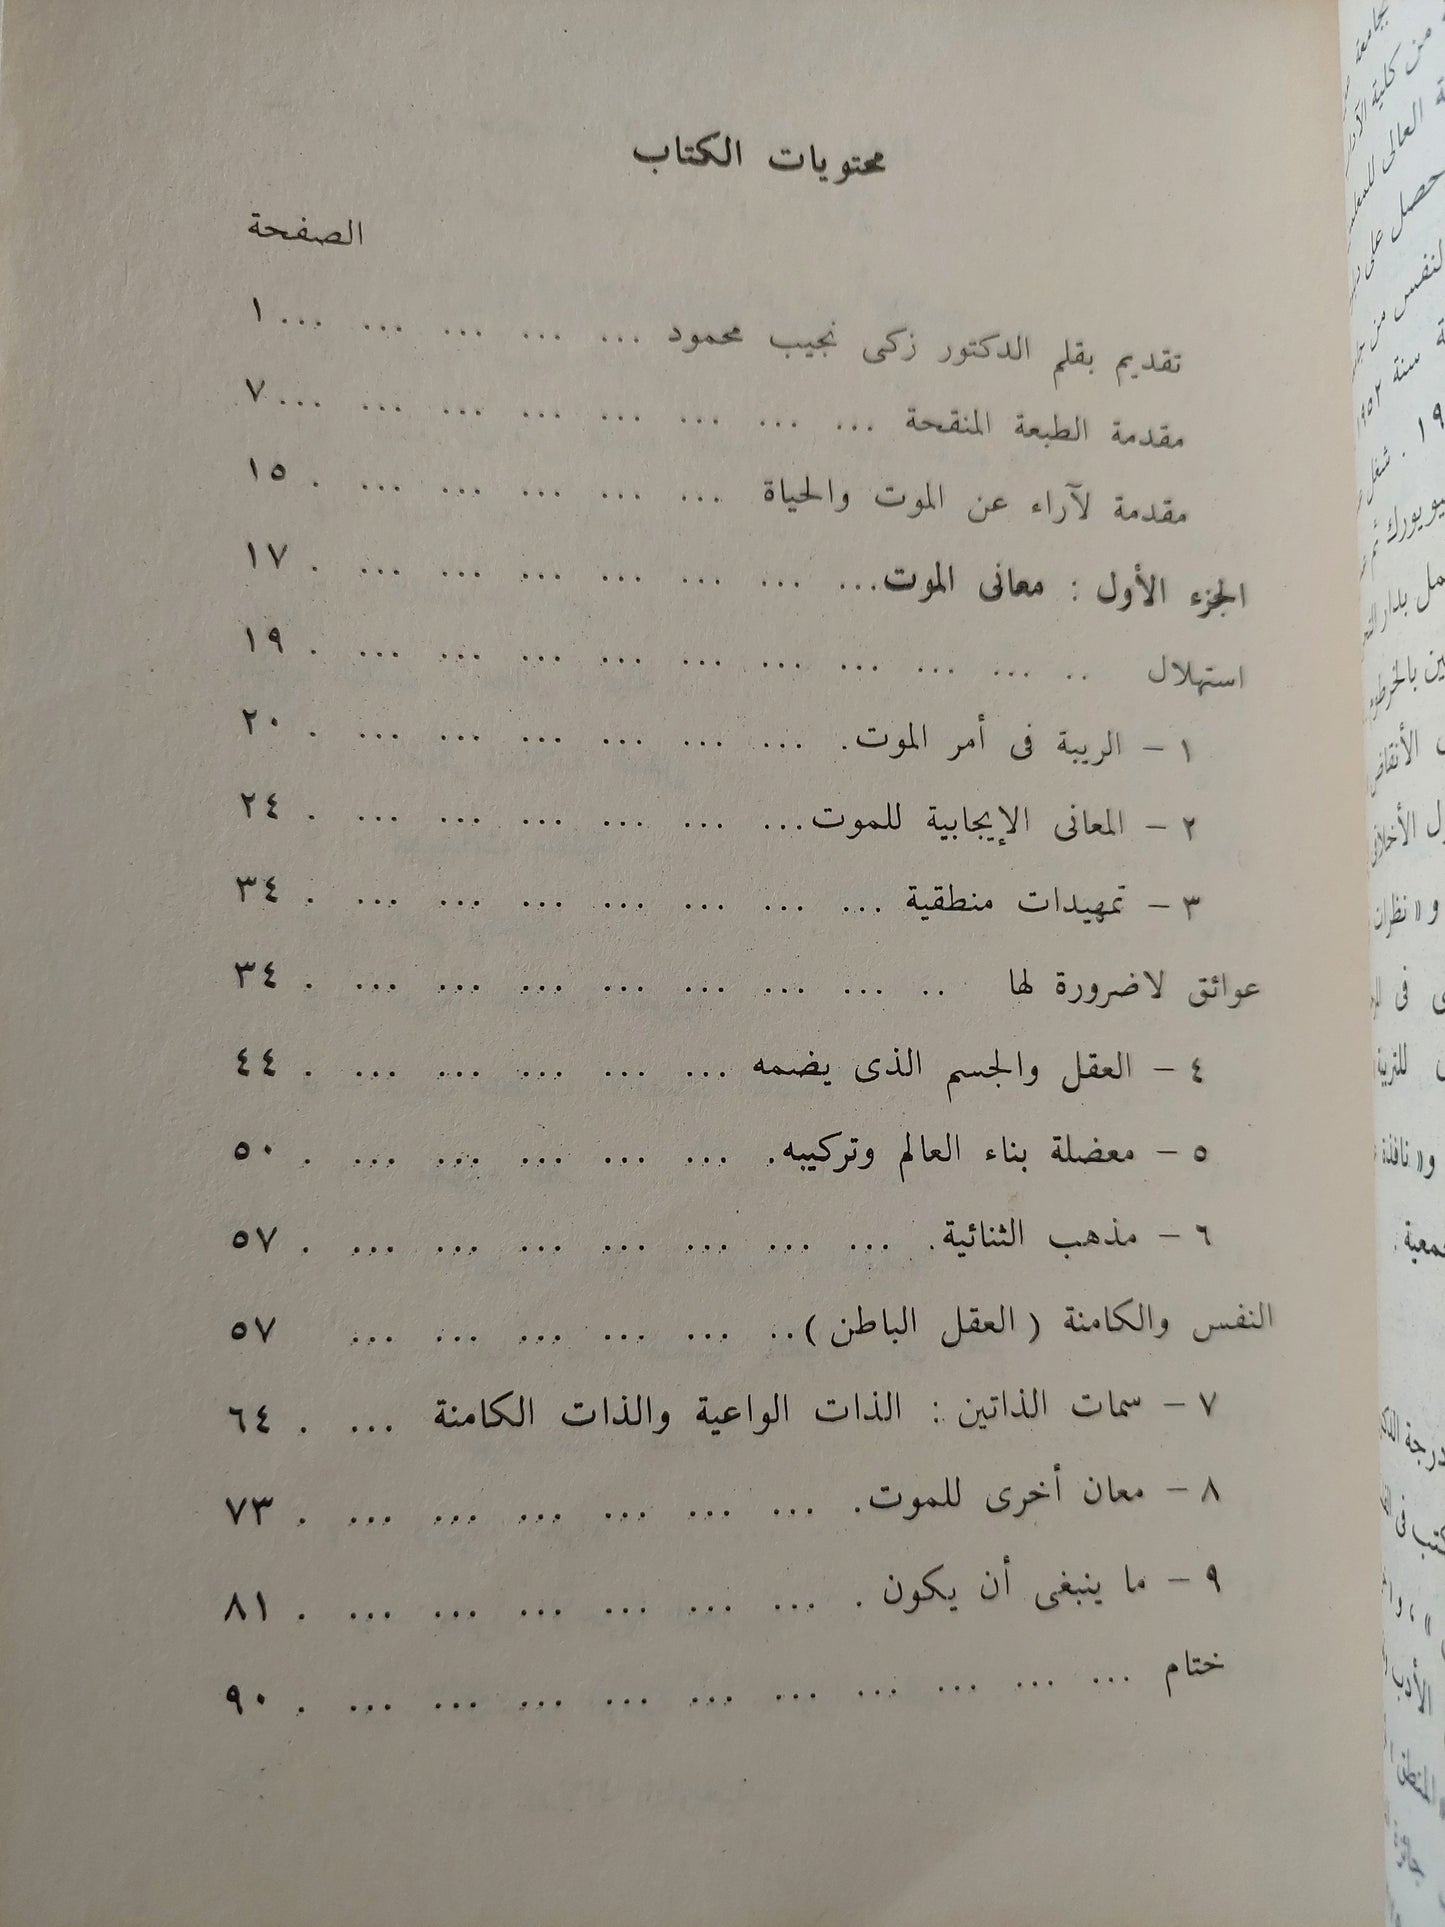 محتويات الكتاب
الصفحة
تقديم بقلم الدكتور زكى نجيب محمود ... ... ... ... ... ١
مقدمة الطبعة المنقحة ... ... ... ... ... ... ... ... ٧
مقدمة لآراء عن الموت والحياة ... ... ... ... ... . ١٥
الجزء الأول : معانى الموت... ... ... ... ... ... ... . ١٧
استهلال .. ... ... ... ... ... ... ... ... ... . ١٩
١ - الريبة فى أمر الموت. ... ... ... ... ... ... . ٢٠
٢ - المعانى الإيجابية للموت... ... ... ... ... ... . ٢٤
٣ - تمهيدات منطقية ... ... ... ... ... ... ... . ٣٤
عوائق لاضرورة لها .. ... ... ... ... ... ... ... . ٣٤
٤ - العقل والجسم الذى يضمه ... ... ... ... ... . ٤٤
٥ - معضلة بناء العالم وتركيبه. ... ... ... ... ... . ٥٠
٦ - مذهب الثنائية. ... ... ... ... ... ... ... . ٥٧
النفس والكامنة ( العقل الباطن ) .. ... ... ... ... ... ٥٧
٧ - سمات الذاتين : الذات الواعية والذات الكامنة ... . ٦٤
٨ - معان أخرى للموت. ... ... ... ... ... ... . ٧٣
٩ - ما ينبغى أن يكون . ... ... ... ... ... ... . ٨١
ختام ... ... ... ... ... ... ... ... ... ... . ٩٠
من كلية
العالى
حصل على
النفس من
سنة ١٩٥٢
شغل
بدار
بالخرطوم
الأنقاض
و « نظرات
للتربية
و « نافذة